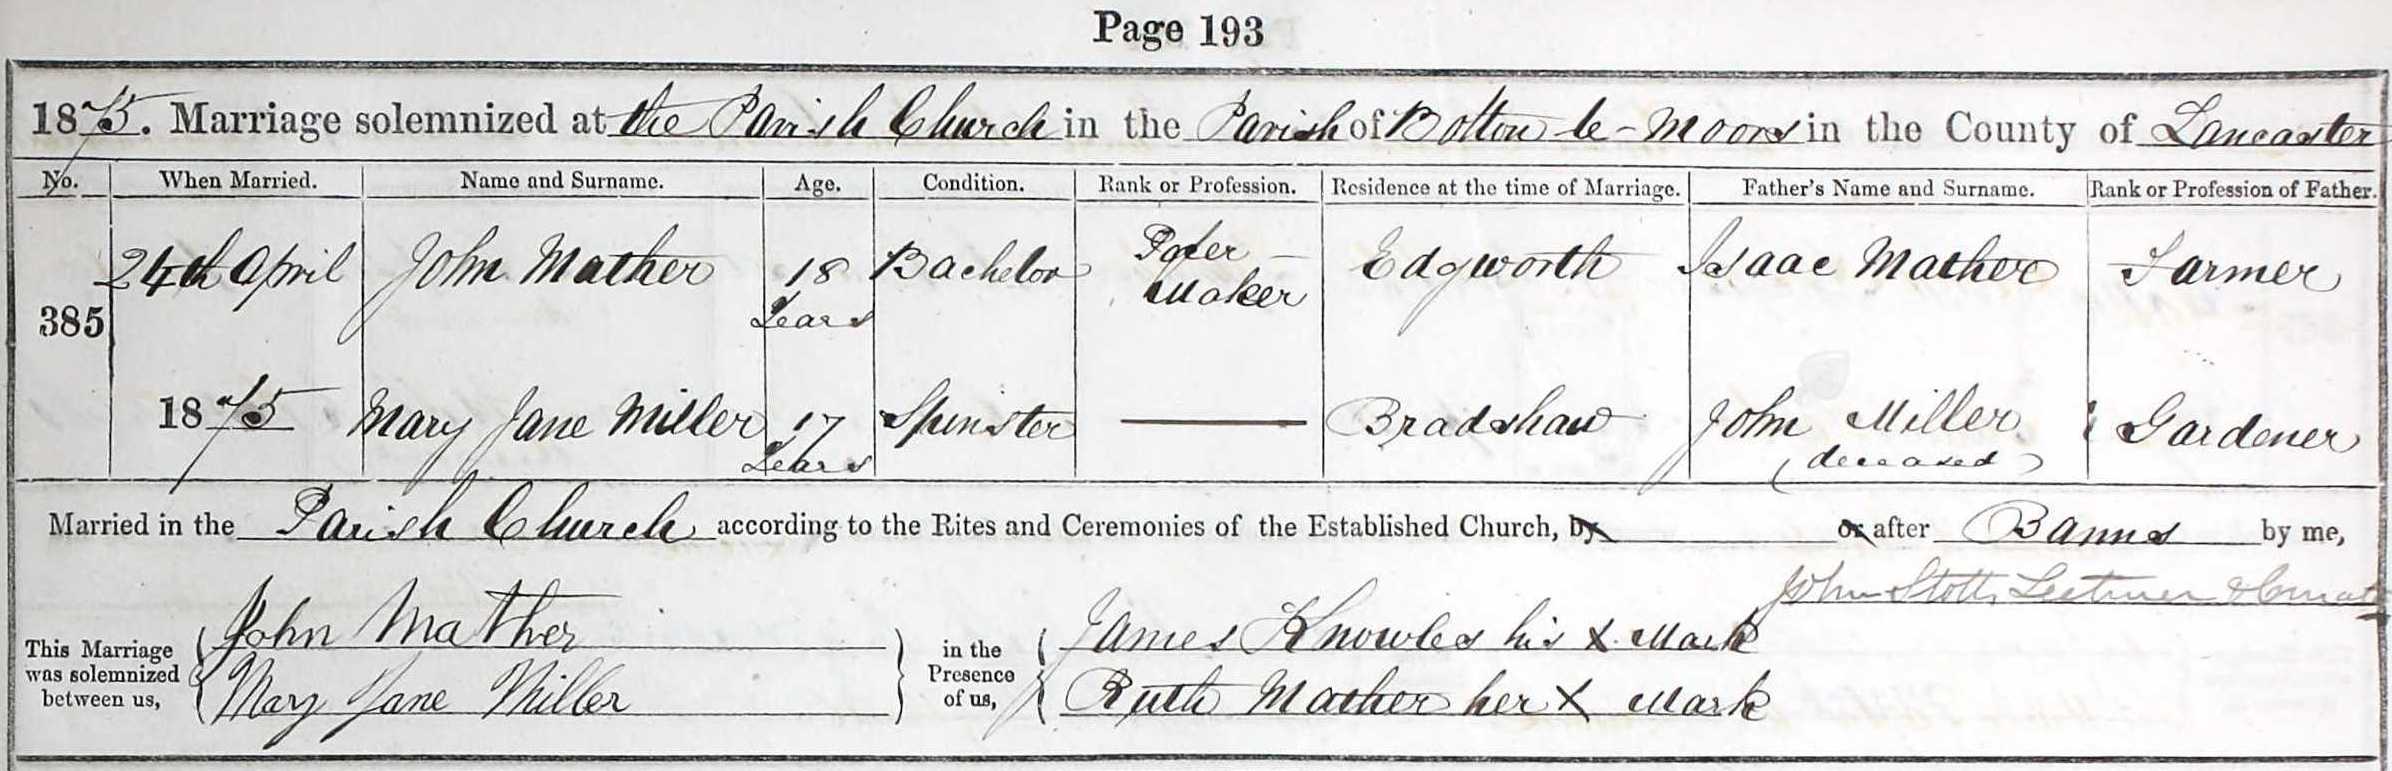 Page 193
1875. Marriage solemnized at the Parish Church in the Parish of Bolton le-Moors in the County of Lancaster
No. When Married. Name and Surname. Age. Condition. Rank or Profession. Residence at the time of Marriage. Father's Name and Surname. Rank or Profession of Father.
385 24th April John Mather 18 Years Bachelor Paper Maker Edgworth Isaac Mather Farmer
1875 Mary Jane Miller 17 Years Spinster Bradshaw John Miller (deceased) Gardener
Married in the Parish Church according to the Rites and Ceremonies of the Established Church, by or after Banns by me,
John Stott, Lecturer & Curate
This Marriage was solemnized between us, John Mather in the Presence of us, James Knowles his X Mark
Mary Jane Miller Ruth Mather her X Mark